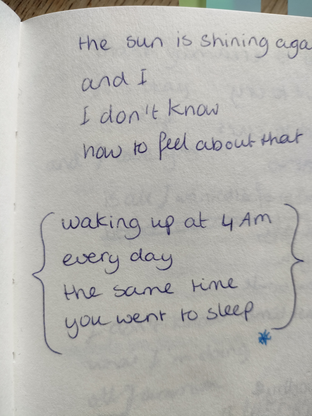 the sun is shining aga
and I
I don't know
how to feel about that
{ waking up at 4 Am
every day
the same time
you went to sleep }
*